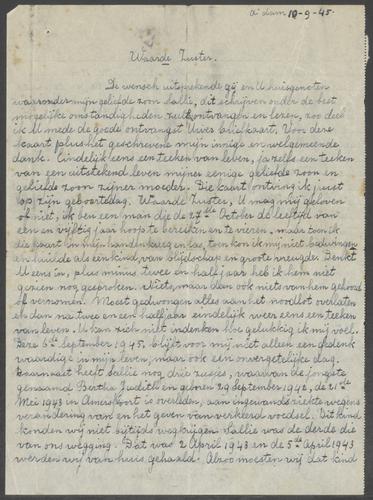 A'dam 10-9-45.
Waarde Zuster.
De wensch uitsprekende gij en U huisgenoten
waaronder mijn geliefde zoon Sallie, dit schrijven onder de best
mogelijke omstandigheden zult ontvangen en lezen, zoo deel
ik U mede de goede ontvangst Uwer briefkaart. Voor deze
kaart plus het geschrevene mijn innige en welgemeende
dank. Eindelijk eens een teeken van leven, ja zelfs een teeken
van een uitstekend leven mijner eenige geliefde zoon en
geliefde zoon zijner moeder. Die kaart ontving ik juist
op zijn geboortedag. Waarde Zuster, U mag mij gelooven
of niet, ik ben een man die de 27ste October de leeftijd van
een en vijftig jaar hoop te bereiken en te vieren, maar toen ik
die kaart in mijn handen kreeg en las, toen kon ik mij niet bedwingen
en huilde als een kind, van blijdschap en groote vreugde. Denkt
U eens in, plus minus twee en half jaar heb ik hem niet
gezien nog gesproken. Niets, maar dan ook niets van hem gehoord
of vernomen. Moest gedwongen alles aan het noodlot overlaten
en dan na twee en een half jaar eindelijk weer eens een teeken
van leven. U kan zich niet indenken hoe gelukkig ik mij voel.
Deze 6de September 1945, blijft voor mij niet alleen een gedenk
waardige in mijn leven, maar ook een onvergetelijke dag.
Daarnaast heeft Sallie nog drie zusjes, waarvan de jongste
genaamd Bertha Judith en geboren 29 September 1942, de 21ste
Mei 1943 in Amersfoort is overleden, aan ingewandsziekte wegens
verandering van en het geven van verkeerd voedsel. Dit kind
konden wij niet bijtijds wegkrijgen. Sallie was de derde die
van ons wegging. Dat was 2 April 1943 en de 5de April 1943
werden wij van huis gehaald. Alzoo moesten wij dat kind